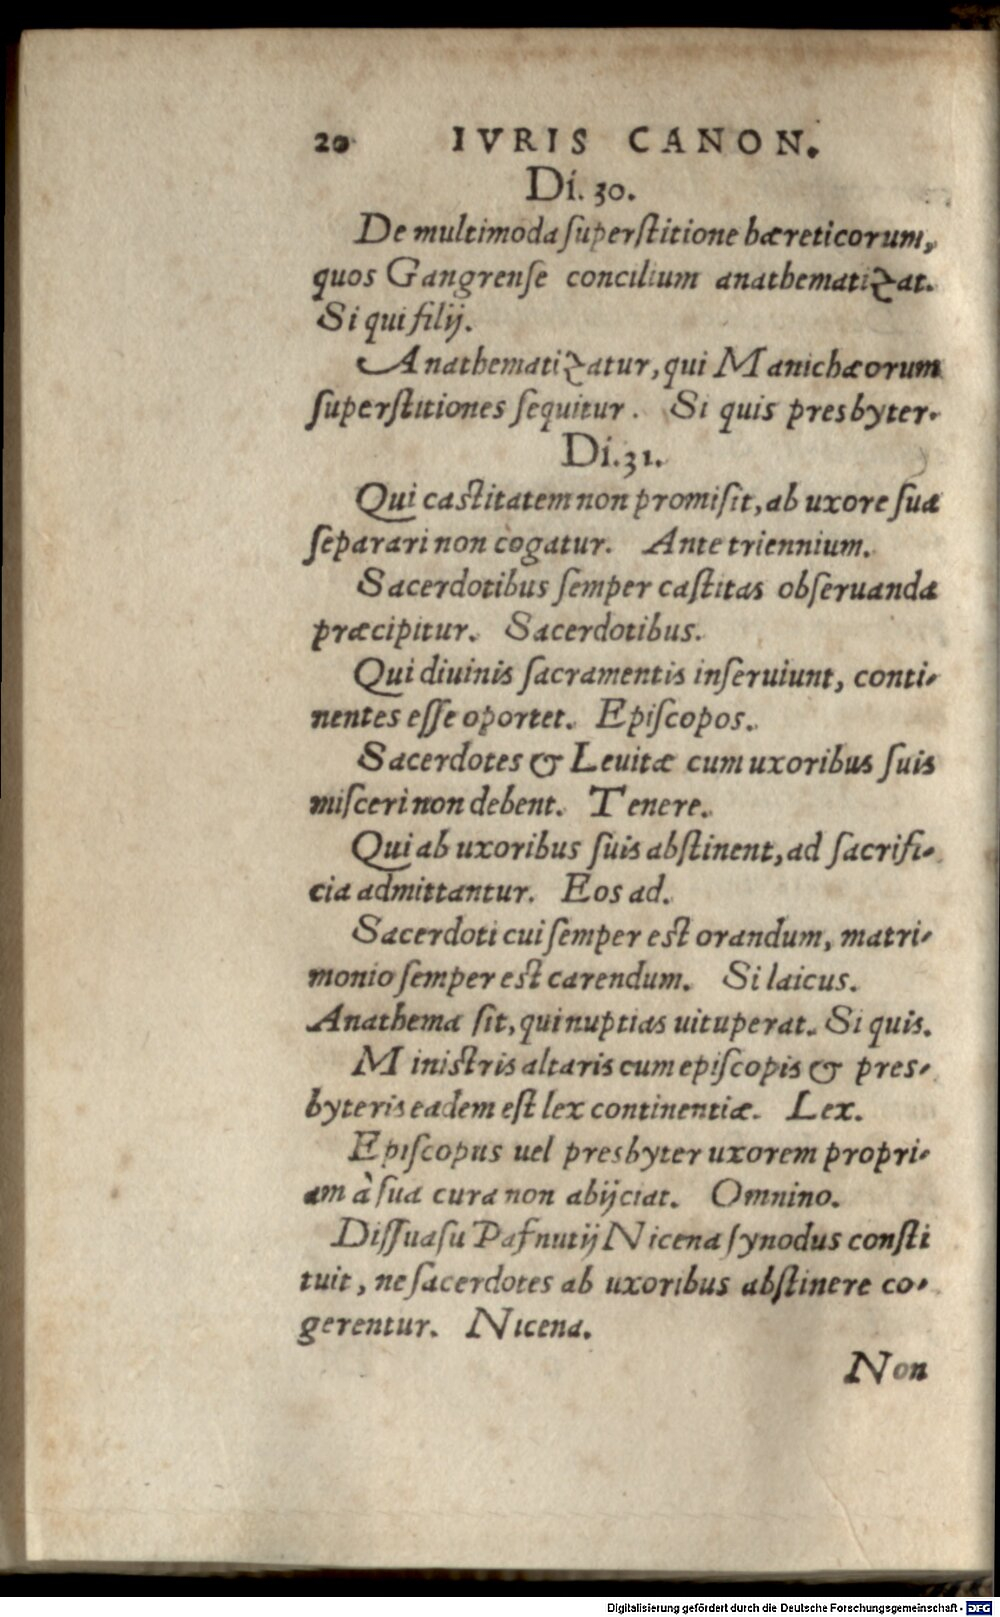 20 IVRIS CANON.
Di. 30.
De multimoda ſuperſtitione hæreticorum,
quos Gangrenſe concilium anathematizat.
Si qui filij.
Anathematizatur, qui Manichæorum
ſuperſtitiones ſequitur. Si quis presbyter.
Di. 31.
Qui caſtitatem non promiſit, ab uxore ſua
ſeparari non cogatur. Ante triennium.
Sacerdotibus ſemper caſtitas obſeruanda
præcipitur. Sacerdotibus.
Qui diuinis ſacramentis inſeruiunt, conti-
nentes eſſe oportet. Epiſcopos.
Sacerdotes & Leuitæ cum uxoribus ſuis
miſceri non debent. Tenere.
Qui ab uxoribus ſuis abſtinent, ad ſacrifi-
cia admittantur. Eos ad.
Sacerdoti cui ſemper eſt orandum, matri-
monio ſemper eſt carendum. Si laicus.
Anathema ſit, qui nuptias uituperat. Si quis.
Miniſtris altaris cum epiſcopis & pres-
byteris eadem eſt lex continentiæ. Lex.
Epiſcopus uel presbyter uxorem propri-
am à ſua cura non abijciat. Omnino.
Diſſuaſu Pafnutij Nicena ſynodus conſti
tuit, ne ſacerdotes ab uxoribus abſtinere co-
gerentur. Nicena.
Non
Digitalisierung gefördert durch die Deutsche Forschungsgemeinschaft - DFG